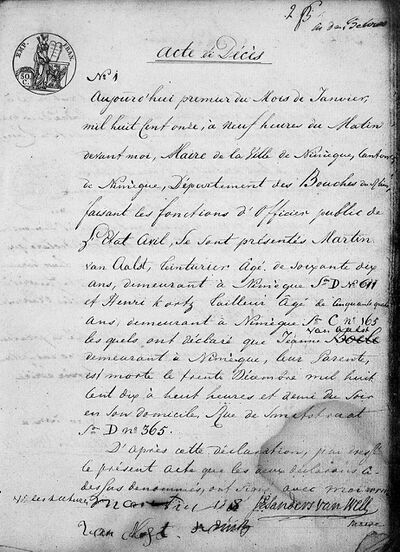 EMP. FRAN.
50 C
Acte de Décès
N° 1
Aujourd'hui premier du Mois de Janvier,
mil huit Cent onze, à neuf heures du Matin
devant moi, Maire de la Ville de Nimègue, Canton
de Nimègue, Département des Bouches du Rhin,
faisant les fonctions d'Officier public de
l'Etat Civil, se sont présentés Martin
van Aalst, Ceinturier Agé de soixante dix
ans, demeurant à Nimègue Sn D N°
et Henri Kortz tailleur Agé de cinquante quatre
ans, demeurant à Nimègue Sn C N° 165
van Aalst
les quels, ont déclaré que Jeanne
demeurant à Nimègue, leur parente,
est morte le trente Décembre mil huit
Cent dix à huit heures et demi du Soir
en son domicile, Rue de
Sn D no 365.
D'après cette déclaration, j'ai
le présent acte que les deux déclarans ci
dessus dénommés, ont signé avec moi
Sanders van Well
van